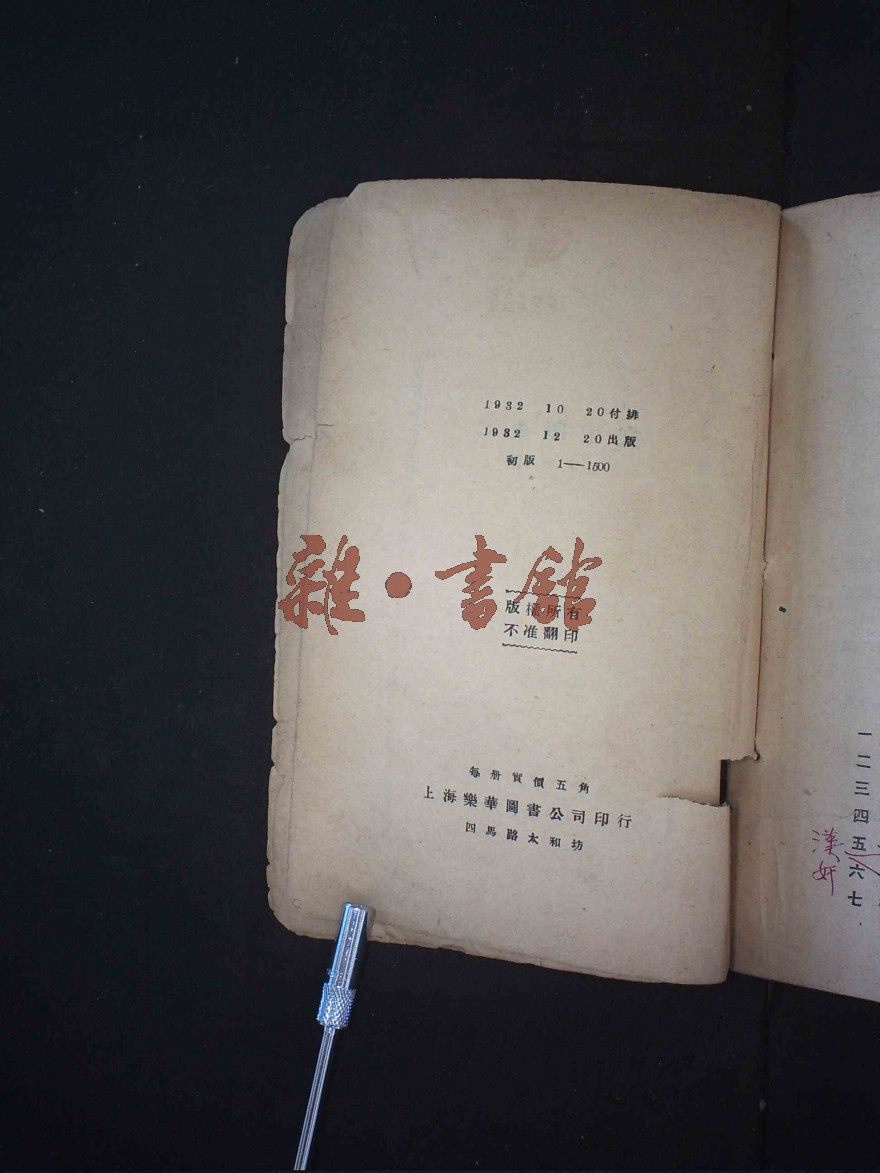 1932 10 20付排
1932 12 20出版
初版 1——1500
雜·書館
版權所有
不准翻印
每册實價五角
上海樂華圖書公司印行
四馬路太和坊
一
二
三
四
五
六
七
漢奸